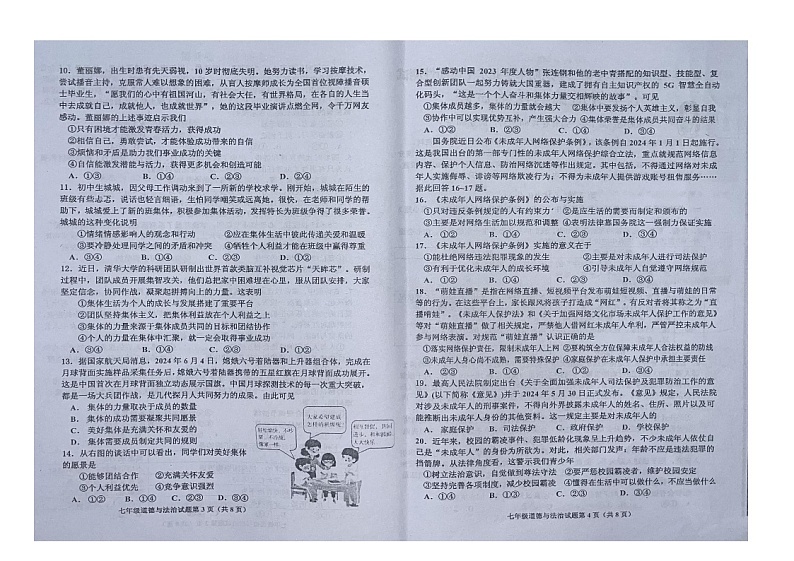 10．董丽娜，出生时患有先天弱视，10 岁时彻底失明。她努力读书，学习按摩技术，
尝试播音主持，克服常人难以想象的困难，从盲人按摩师成长为全国首位视障播音硕
士毕业生，“愿我们的心中有祖国河山，有社会大任，有世界格局，在各自的人生当
中去成就自己，成就他人，也成就世界”，她的这段毕业演讲点燃全网，令千万网友
感动。董丽娜的上述事迹启示我们
①只有困境才能激发青春活力，获得成功
②相信自己，勇敢尝试，才能体验成功带来的自信
③烦恼和矛盾是助力我们事业成功的关键
④自信能激发潜能与活力，获得更多机会和创造可能
A．①③ B．①④ C．②③ D．②④
11．初中生城城，因父母工作调动来到了一所新的学校求学。刚开始，城城在陌生的
班级有些忐忑，说话也轻言细语，生怕同学嘲笑或远离她，很快，在老师和同学的帮
助下，城城爱上了新的班集体，积极参加集体活动，发挥特长为班级争得了很多荣誉。
城城的这种变化说明
①情绪情感影响人的观念和行动 ②应在集体生活中彼此传递美好情感和温暖
③要冷静处理同学之间的矛盾和冲突 ④牺牲个人利益才能在班集体中赢得尊重
A．①② B．①③ C．②④ D．③④
12．近日，清华大学的科研团队研制出世界首款类脑互补视觉芯片“天眸芯”。研制
过程中，团队成员开展集智攻关，他们总是把家中困难埋在心里，服从团队安排，大家
坚定信念，协同作战，凝聚起拼搏向上的力量。这表明
①集体生活为个人的成长与发展搭建了重要平台
②团队坚持集体主义，把集体利益放在个人利益之上
③集体的力量来源于集体成员共同的目标和团结协作
④个人的力量在集体中汇聚，就一定会取得事业成功
A．①② B．①④ C．②③ D．③④
13．据国家航天局消息，2024 年 6 月 4 日，嫦娥六号着陆器和上升器组合体，完成在
月球背面实施样品采集任务后，嫦娥六号着陆器携带的五星红旗在月球背面成功展开。
这是中国首次在月球背面独立动态展示国旗。中国月球探测技术的每一次重大突破，
都是一场大兵团作战，是几代探月人共同努力的成果。由此可见
A．集体的力量取决于成员的数量
B．集体的成功需要凝聚共同愿景
C．美好集体充满关怀和友爱的
D．集体需要成员制定共同的规则
14．从右图的谈话中可以看出，同学们对美好集体
的愿景是
①能够团结合作 ②充满关怀友爱
③个人利益优先 ④竞争意识强烈
A．①② B．①④ C．②③ D．③④
大家希望建成
怎样的新班级？
七年级道德与法治试题第 3 页（共 8 页）
15．“感动中国 2023 年度人物”张连钢和他的老中青搭配的知识型，技能型、复
合型创新团队一起努力铸就大国重器，建成了拥有自主知识产权的 5G 智慧全自动
化码头，“这是一个个人奋斗和集体力量交相辉映的故事”，可见
①集体成员越多，集体的力量就会越大 ②集体中要发扬个人英雄主义，彰显自我
③协作中可以实现优势互补，产生强大合力 ④集体荣誉是集体成员共同奋斗的结果
A．①② B．①④ C．②③ D．③④
国务院近日公布《未成年人网络保护条例》，该条例自 2024 年 1 月 1 日起施行。
这是我国出台的第一部专门性的未成年人网络保护综合立法，重点就规范网络信息
内容、保护个人信息、防治网络沉迷等作出规定，其中包括，不得通过网络对未成
年人实施侮辱、诽谤等网络欺凌行为；不得为未成年人提供游戏账号租售服务……
据此回答 16-17 题。
16．《未成年人网络保护条例》的公布与实施
①只对违反条例规定的人有约束力 ②是应生活的需要而制定和颁布的
③主要是对网络生活加以规范和调整 ④意味着保护网络信息靠国家这一强制力保证实施
A．①② B．①③ C．②④ D．③④
17．《未成年人网络保护条例》实施的意义在于
①能杜绝网络违法犯罪现象的发生 ②主要是对未成年人进行司法保护
③有利于优化未成年人的成长环境 ④引导未成年人自觉遵守网络规范
A．①② B．①③ C．②④ D．③④
18．“萌娃直播”是指在网络直播、短视频平台发布萌娃短视频、直播萌娃的日常
等的行为。在这些平台上，家长跟风将孩子打造成“网红”。有反对者将其称之为“直
播啃娃”。《未成年人保护法》和《关于加强网络文化市场未成年人保护工作的意见》
等对“萌娃直播”做了相关规定，严禁他人借网红未成年人牟利，严格管控未成年人
参与网络表演。对规范“萌娃直播”认识正确的是
①落实网络保护责任，阻断网络有害信息 ②构筑网络安全防线，为未成年人健康成长助力
③未成年人身心尚未成熟，需要给予特殊保护 ④家庭保护在未成年人保护中承担主要责任
A．①② B．①④ C．②③ D．③④
19．最高人民法院制定出台《关于全面加强未成年人司法保护及犯罪防治工作的意
见》(以下简称《意见》)并于 2024 年 5 月 30 日正式发布。《意见》规定，人民法院
对涉及未成年人的刑事案件，不得向外界披露未成年人的姓名、住所、照片以及可
能推断出未成年人身份的其他资料。这一规定主要是对未成年人的
A．家庭保护 B．司法保护 C．政府保护 D．学校保护
20．近年来，校园的霸凌事件、犯罪低龄化现象呈上升趋势，不少未成年人依仗自
己是“未成年人”的身份为所欲为。对此，相关部门发声：年龄不应是违法犯罪的
挡箭牌。从法律角度看，这警示我们青少年
①树立法治意识，自觉做到尊法守法 ②要严惩校园霸凌者，维护校园安定
③坚持完善各项制度，减少校园霸凌 ④懂得在生活中依法自律，做守法的人
A．①② B．①④ C．②③ D．③④
七年级道德与法治试题第 4 页（共 8 页）